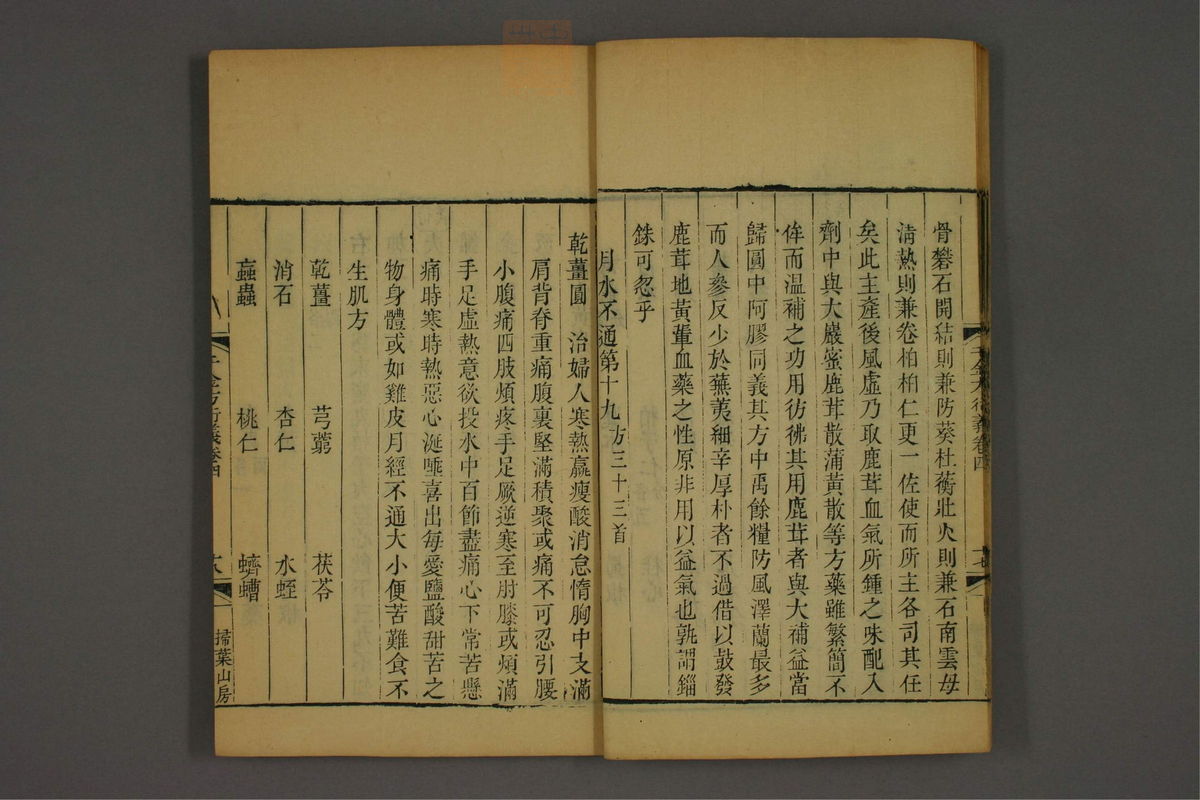 骨礬石開秸則兼防葵杜蘅壯火則兼石南雲母
清熱則兼卷柏柏仁更一佐使而所主各司其任
矣此主產後風虛乃取鹿茸血氣所鍾之味配入
劑中與大巖蜜鹿茸散蒲黃散等方藥雖繁簡不
侔而温補之功用彷彿其用鹿茸者與大補益當
歸圓中阿膠同義其方中禹餘糧防風澤蘭最多
而人參反少於蕪荑細辛厚朴者不過借以鼓發
鹿茸地黃輩血藥之性原非用以益氣也孰謂錙
銖可忽乎
月水不通第十九方三十三首
乾薑圓 治婦人寒熱羸瘦酸消怠惰胸中支滿
肩背脊重痛腹裏堅滿積聚或痛不可忍引腰
小腹痛四肢煩疼手足厥逆寒至肘膝或煩滿
手足虛熱意欲投水中百節盡痛心下常苦懸
痛時寒時熱惡心涎唾喜出每愛鹽酸甜苦之
物身體或如雞皮月經不通大小便苦難食不
生肌方
乾薑 芎藭 茯苓
消石 杏仁 水蛭
蝱蟲 桃仁 蠐螬
千金方衍義卷四
掃葉山房